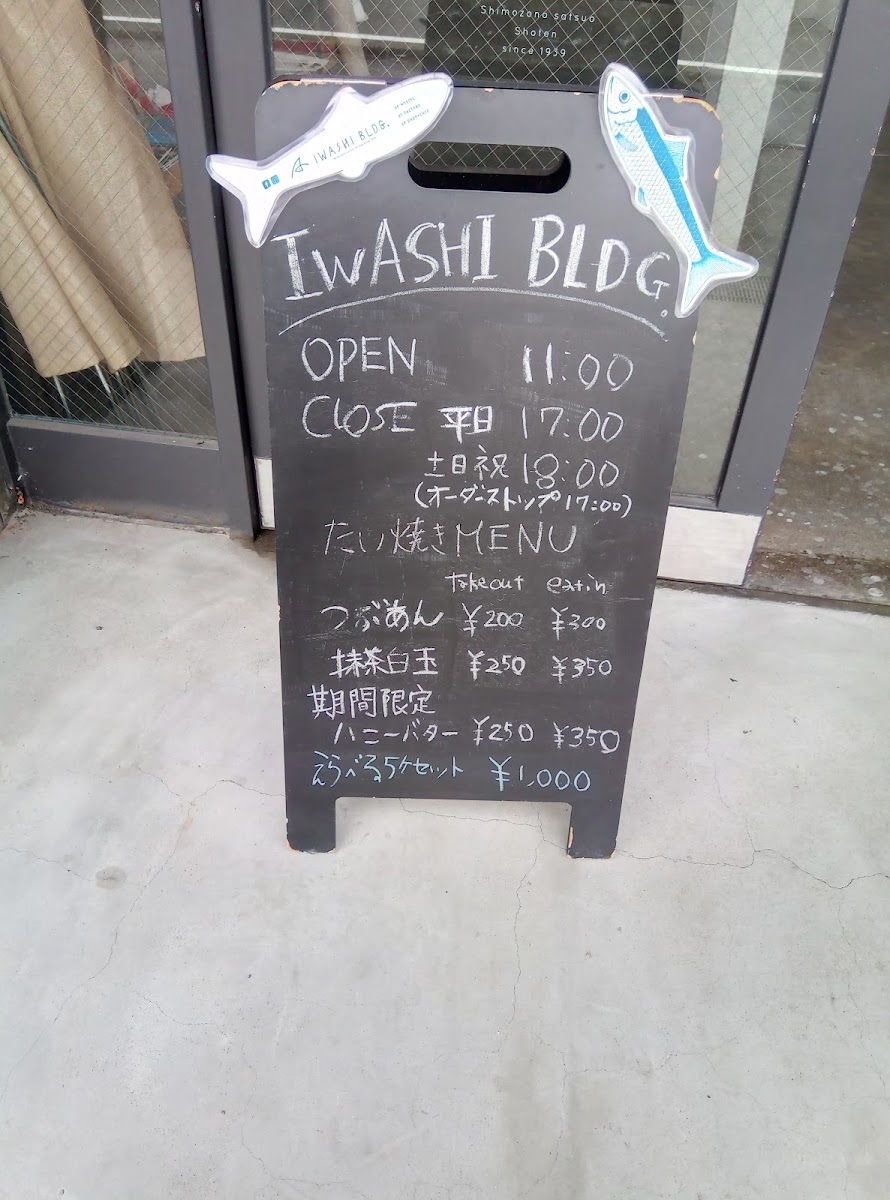 Shimozono satsuo
Shoten
since 1939
IWASHI BLDG.
IWASHI BLDG.
OPEN 11:00
CLOSE 平日 17:00
土日祝 18:00
(オーダーストップ 17:00)
たい焼き MENU
takeout eatin
つぶあん ¥200 ¥300
抹茶白玉 ¥250 ¥350
期間限定
ハニーバター ¥250 ¥350
えらべる5ケセット ¥1,000